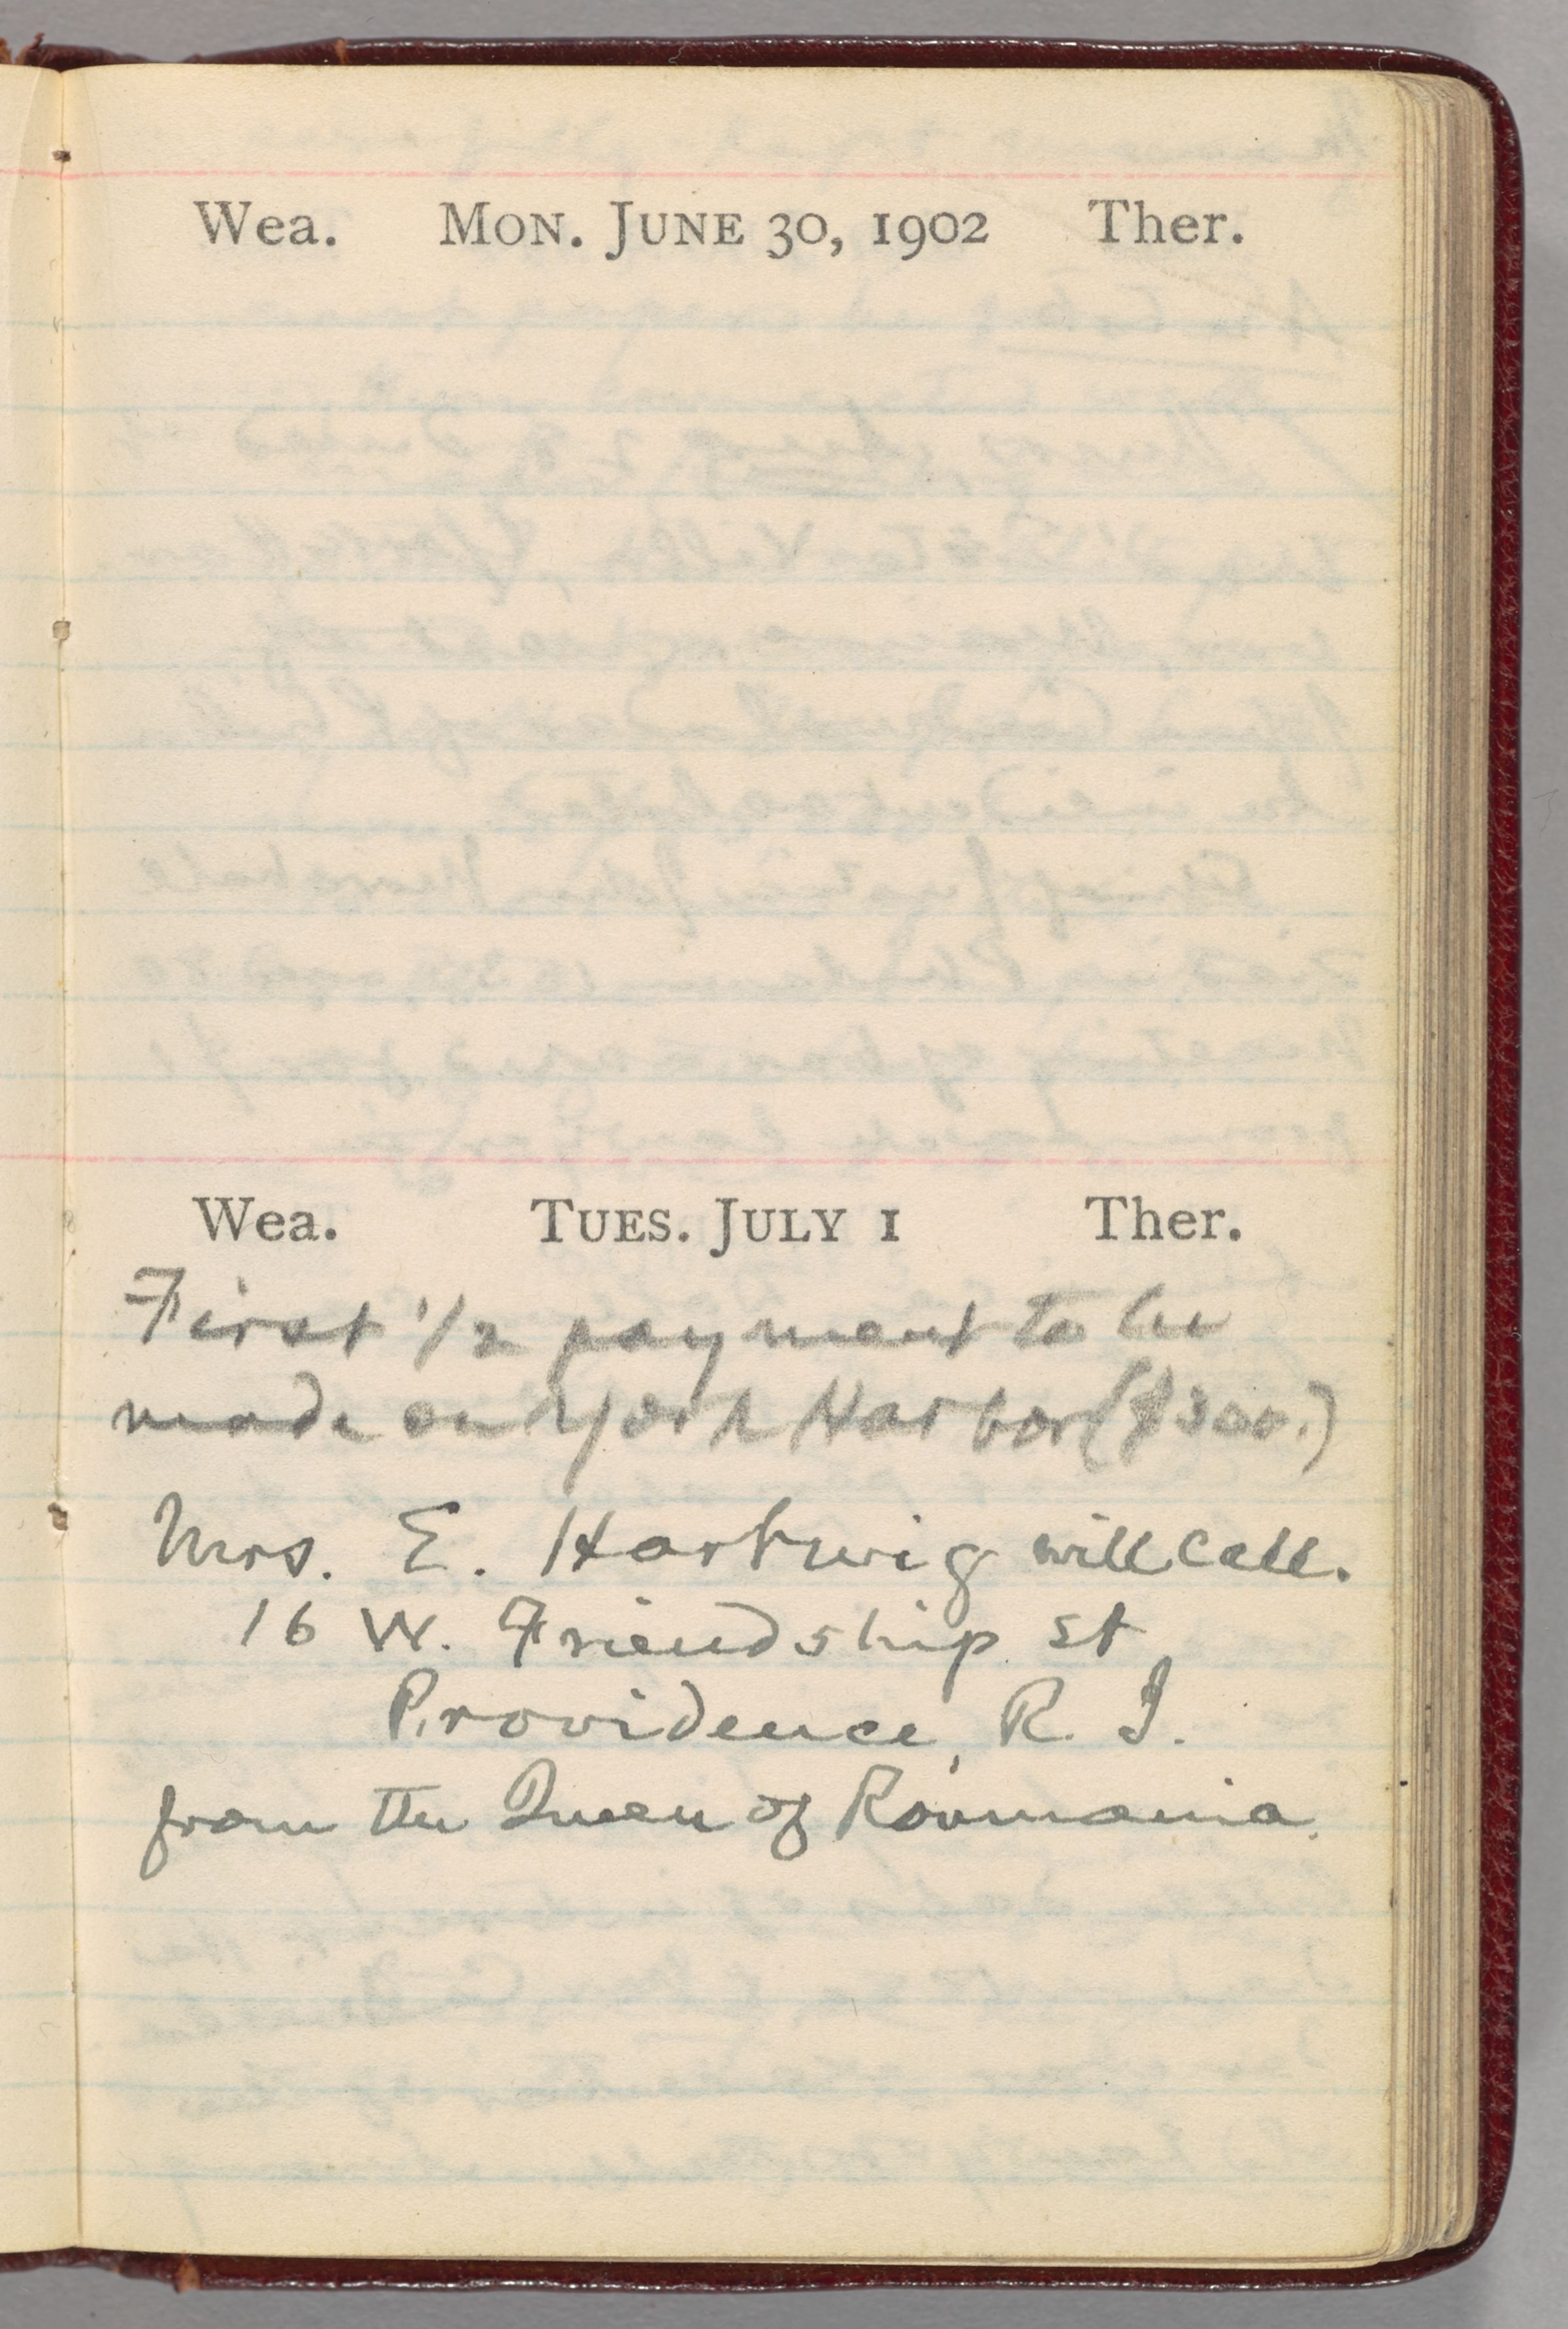 Wea. MON. JUNE 30, 1902 Ther.
Wea. TUES. JULY 1 Ther.
First 1/2 payment to be
made on York Harbor ($300.)
Mrs. E. Hartwig will call.
16 W. Friendship St
Providence, R. I.
from the Queen of Roumania.